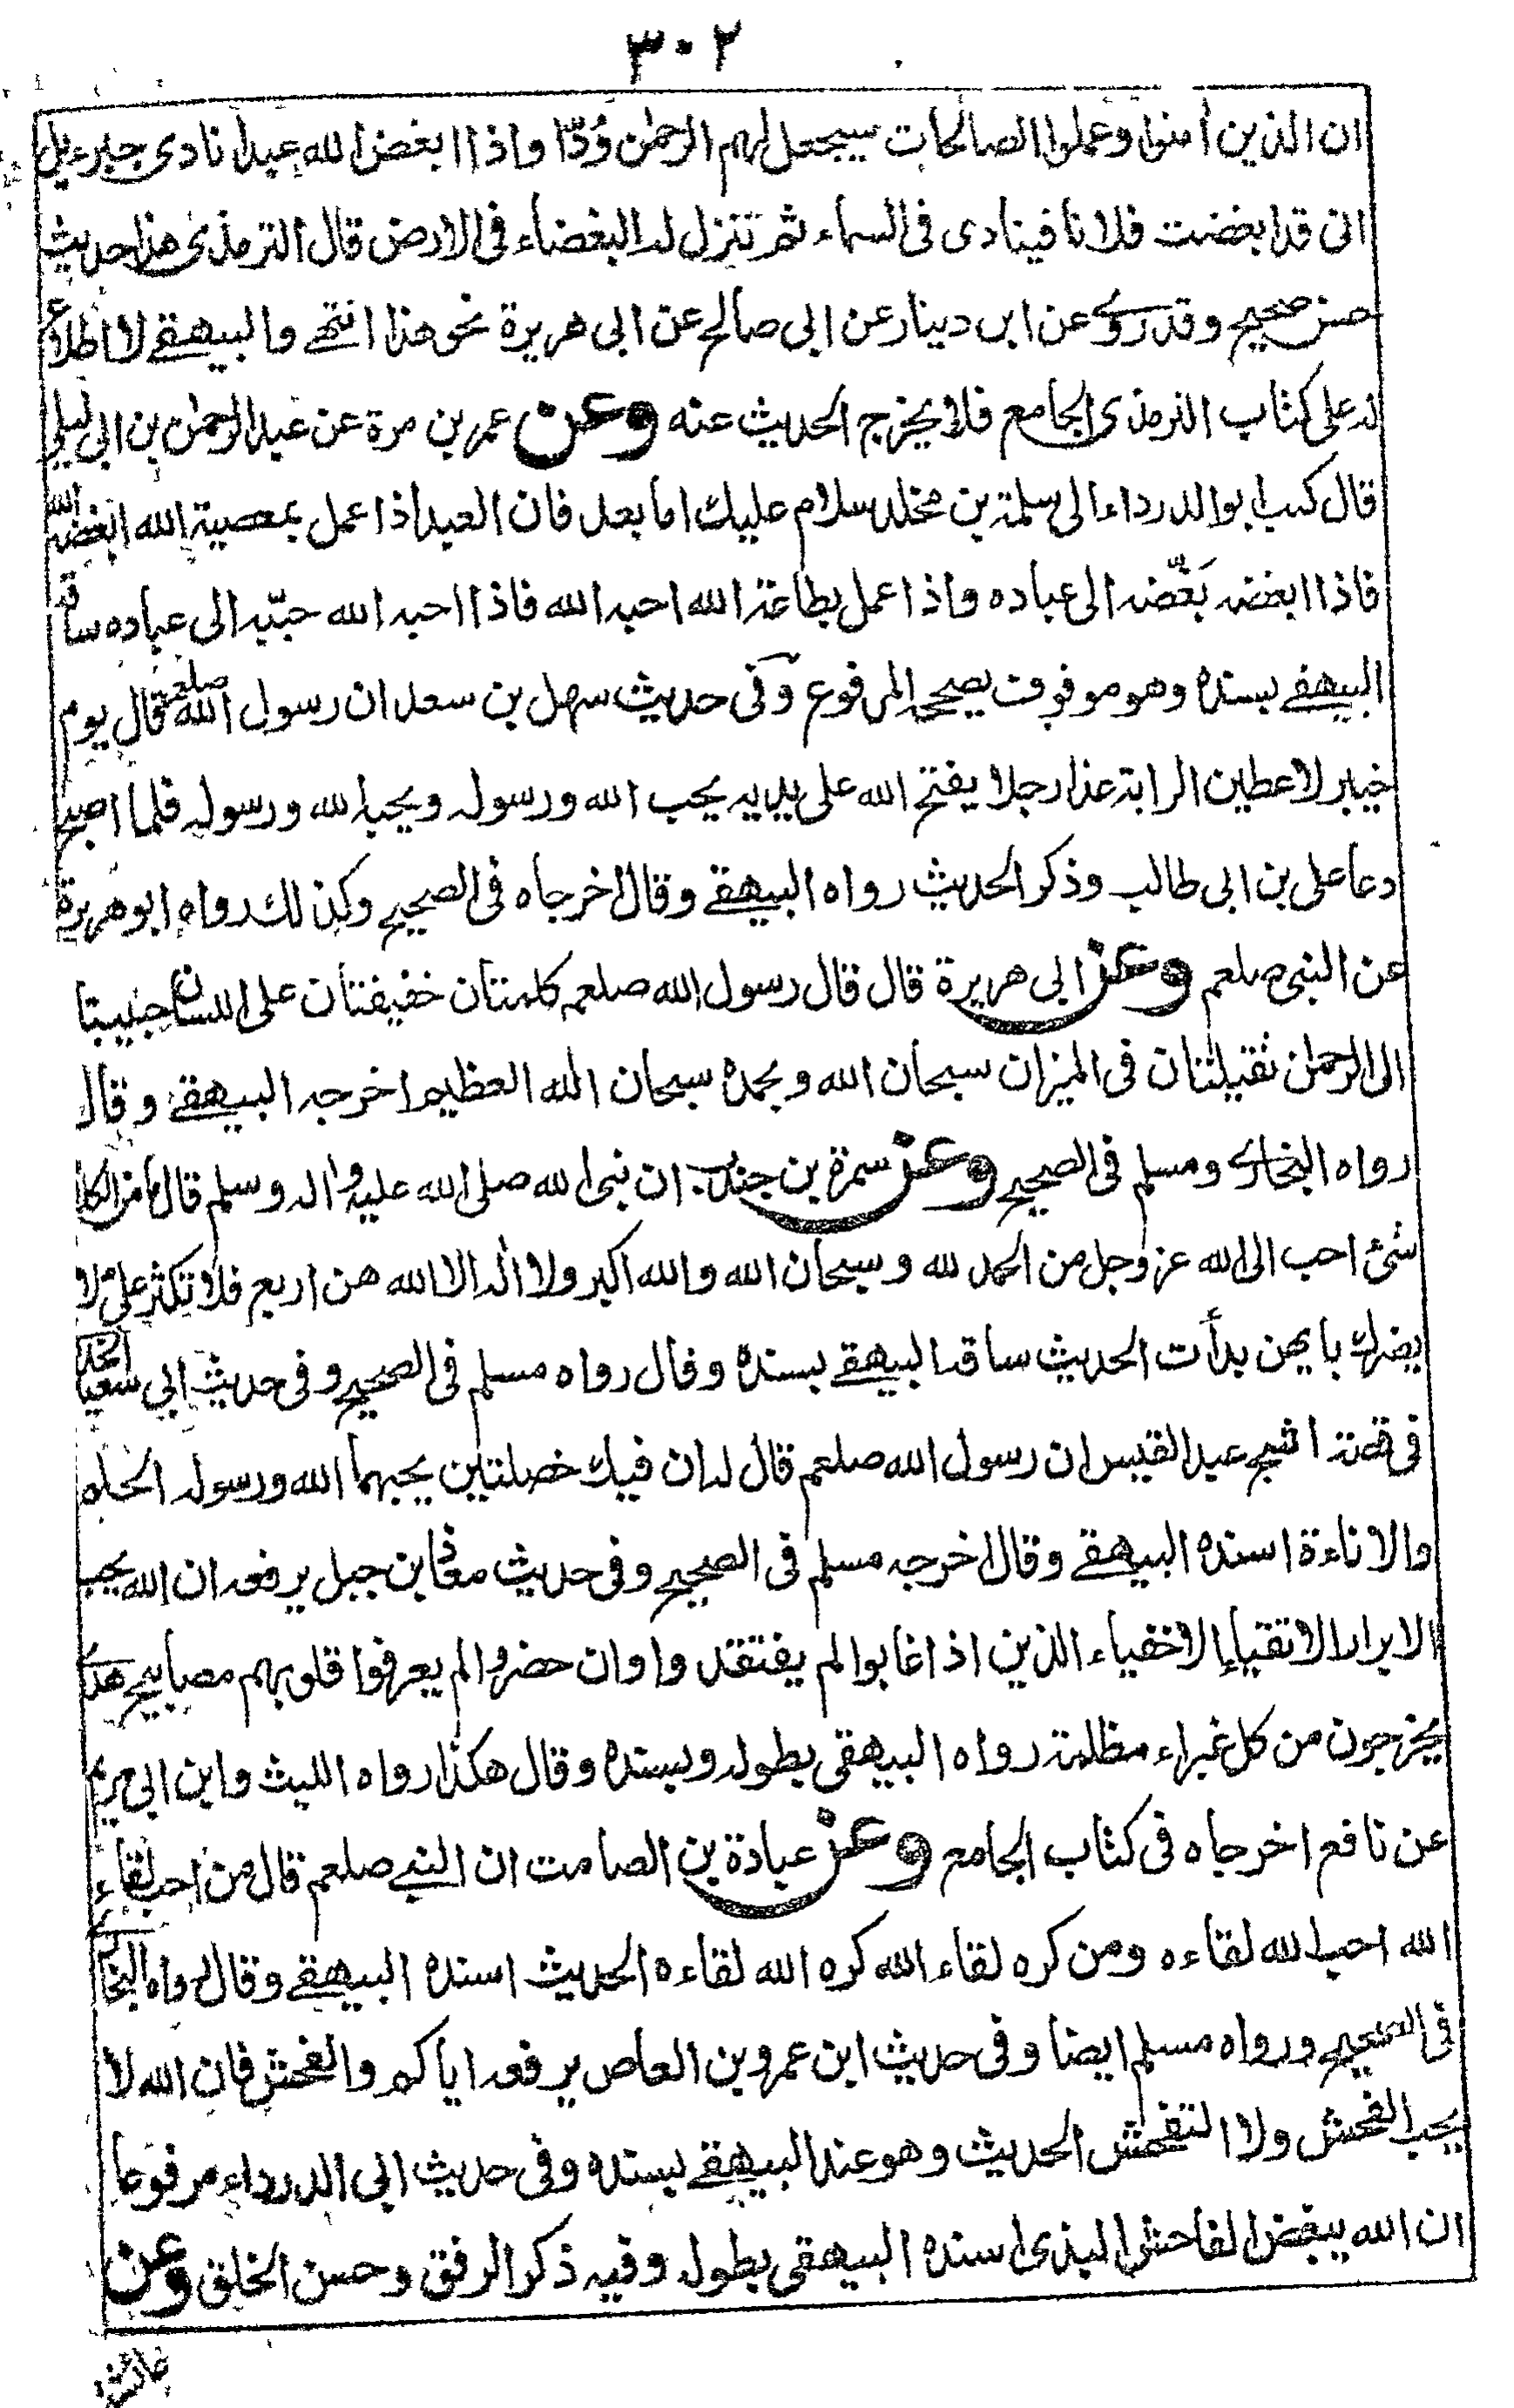 ٣٠٢
ان الذين أمنوا وعملوا الصالحات سيجعل لهم الرحمٰن وُدّا واذا ابغض الله عبدا نادى جبرءيل
انى قد ابغضت فلانا فينادى فى السماء ثم تنزل له البغضاء فى الارض قال الترمذى هذا حديث
حسن صحيح وقد روى عن ابن دينار عن ابى صالح عن ابى هريرة نحو هذا انتهے والبيهقے لا اطلاع
له على كتاب الترمذى الجامع فلا يخرج الحديث عنه وعن عمرو بن مرة عن عبد الرحمٰن بن ابى ليلى
قال كتب ابو الدرداء الى سلمة بن مخلد سلام عليك اما بعد فان العبد اذا عمل بمعصية الله ابغضه الله
فاذا ابغضه بَغَّضه الى عباده واذا عمل بطاعة الله احبه الله فاذا احبه الله حبّبه الى عباده ساقه
البيهقے بسنده وهو موقوف يصححه المرفوع وفى حديث سهل بن سعد ان رسول الله صلعم قال يوم
خيبر لاعطين الراية غدا رجلا يفتح الله على يديه يحب الله ورسوله ويحبه الله ورسوله فلما اصبح
دعا على بن ابى طالب وذكر الحديث رواه البيهقے وقال اخرجاه فى الصحيح وكذلك رواه ابو هريرة
عن النبى صلعم وعن ابى هريرة قال قال رسول الله صلعم كلمتان خفيفتان على اللسان حبيبتا
الى الرحمٰن ثقيلتان فى الميزان سبحان الله وبحمده سبحان الله العظيم اخرجه البيهقے وقال
رواه البخارى ومسلم فى الصحيح وعن سمرة بن جندب ان نبى الله صلى الله عليه واله وسلم قال ما من الكلا
شئ احب الى الله عز وجل من الحمد لله وسبحان الله والله اكبر ولا اله الا الله هن اربع فلا تكثر على لا
يضرك بايهن بدأت الحديث ساقه البيهقے بسنده وقال رواه مسلم فى الصحيح وفى حديث ابى سعيد الخد
فى قصة اشج عبد القيس ان رسول الله صلعم قال له ان فيك خصلتين يحبهما الله ورسوله الحلم
والاناءة اسنده البيهقے وقال اخرجه مسلم فى الصحيح وفى حديث معاذ بن جبل يرفعه ان الله يحب
الابرار الاتقياء الاخفياء الذين اذا غابوا لم يفتقدوا وان حضروا لم يعرفوا قلوبهم مصابيح هدى
يخرجون من كل غبراء مظلمة رواه البيهقى بطوله وبسنده وقال هكذا رواه الليث وابن ابى مريم
عن نافع اخرجاه فى كتاب الجامع وعن عبادة بن الصامت ان النبے صلعم قال من احب لقاء
الله احب الله لقاءه ومن كره لقاء الله كره الله لقاءه الحديث اسنده البيهقے وقال رواه البخارى
فى الصحيح ورواه مسلم ايضا وفى حديث ابن عمرو بن العاص يرفعه اياكم والفحش فان الله لا
يحب الفحش ولا التفحش الحديث وهو عند البيهقے بسنده وفى حديث ابى الدرداء مرفوعا
ان الله يبغض الفاحش البذى اسنده البيهقى بطوله وفيه ذكر الرفق وحسن الخلق وعن